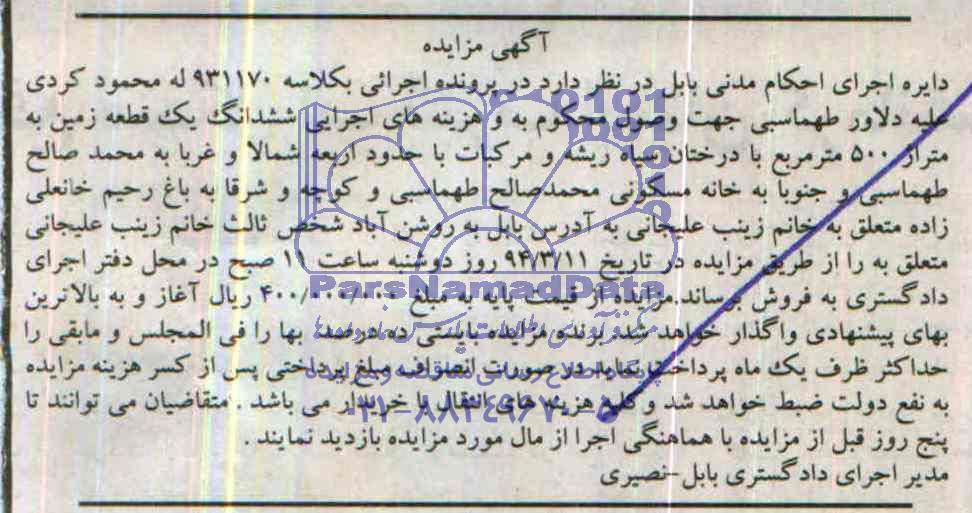 آگهی مزایده
دایره اجرای احکام مدنی بابل در نظر دارد در پرونده اجرائی بکلاسه ۹۳۱۱۷۰ له محمود کردی
علیه دلاور طهماسبی جهت وصول محکوم به و هزینه های اجرایی ششدانگ یک قطعه زمین به
متراژ ۵۰۰ مترمربع با درختان سیاه ریشه و مرکبات با حدود اربعه شمالا و غربا به محمد صالح
طهماسبی و جنوبا به خانه مسکونی محمدصالح طهماسبی و کوچه و شرقا به باغ رحیم خانعلی
زاده متعلق به خانم زینب علیجانی به آدرس بابل به روشن آباد شخص ثالث خانم زینب علیجانی
متعلق به را از طریق مزایده در تاریخ ۹۴/۳/۱۱ روز دوشنبه ساعت ۱۱ صبح در محل دفتر اجرای
دادگستری به فروش برساند.مزایده از قیمت پایه به مبلغ ۴۰۰/۰۰۰/۰۰۰ ریال آغاز و به بالاترین
بهای پیشنهادی واگذار خواهد شد. برنده مزایده بایستی ده درصد بها را فی المجلس و مابقی را
حداکثر ظرف یک ماه پرداخت نماید در صورت انصراف مبلغ پرداختی پس از کسر هزینه مزایده
به نفع دولت ضبط خواهد شد و کلیه هزینه های انتقال با خریدار می باشد . متقاضیان می توانند تا
پنج روز قبل از مزایده با هماهنگی اجرا از مال مورد مزایده بازدید نمایند .
مدیر اجرای دادگستری بابل-نصیری
ParsNamadData
۰۲۱-۸۸۳۴۹۶۷۰-۵